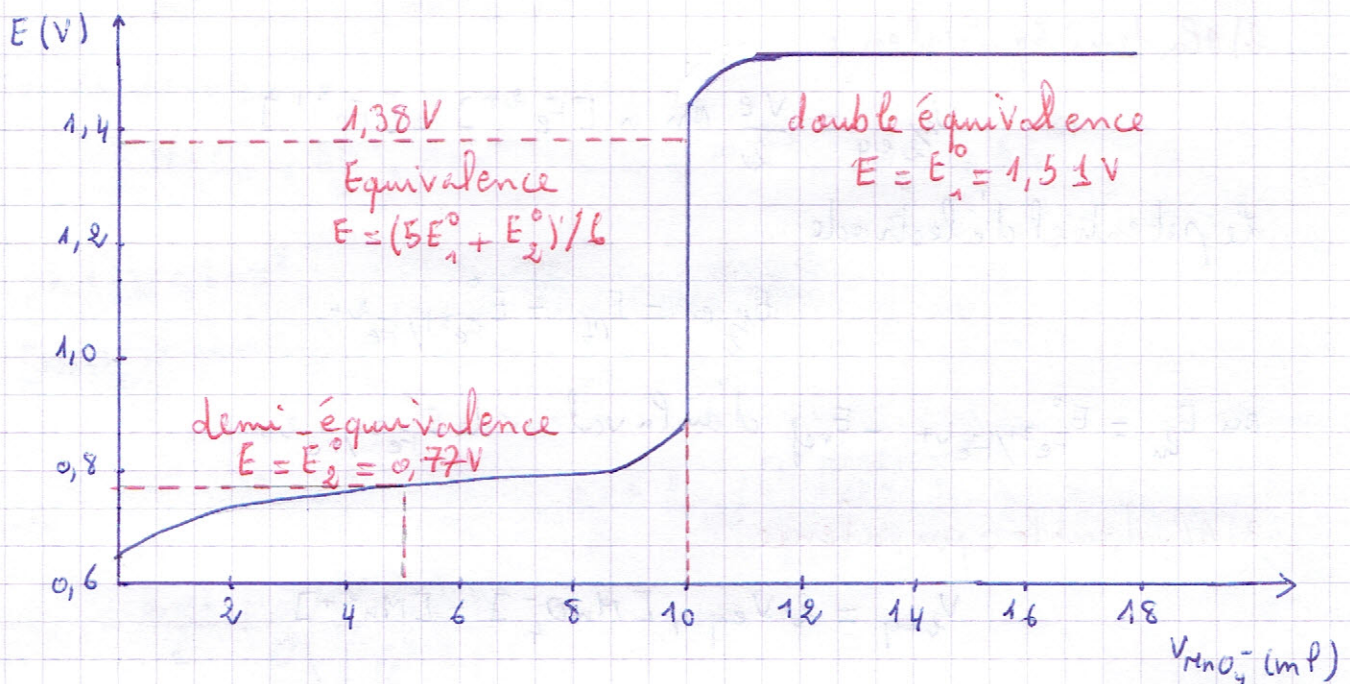 E (V)
1,4
1,38 V
Equivalence
E = (5E°₁ + E°₂)/6
double équivalence
E = E°₁ = 1,51 V
1,2
1,0
demi-équivalence
E = E°₂ = 0,77V
0,8
0,6
2 4 6 8 10 12 14 16 18
V MnO₄⁻ (ml)